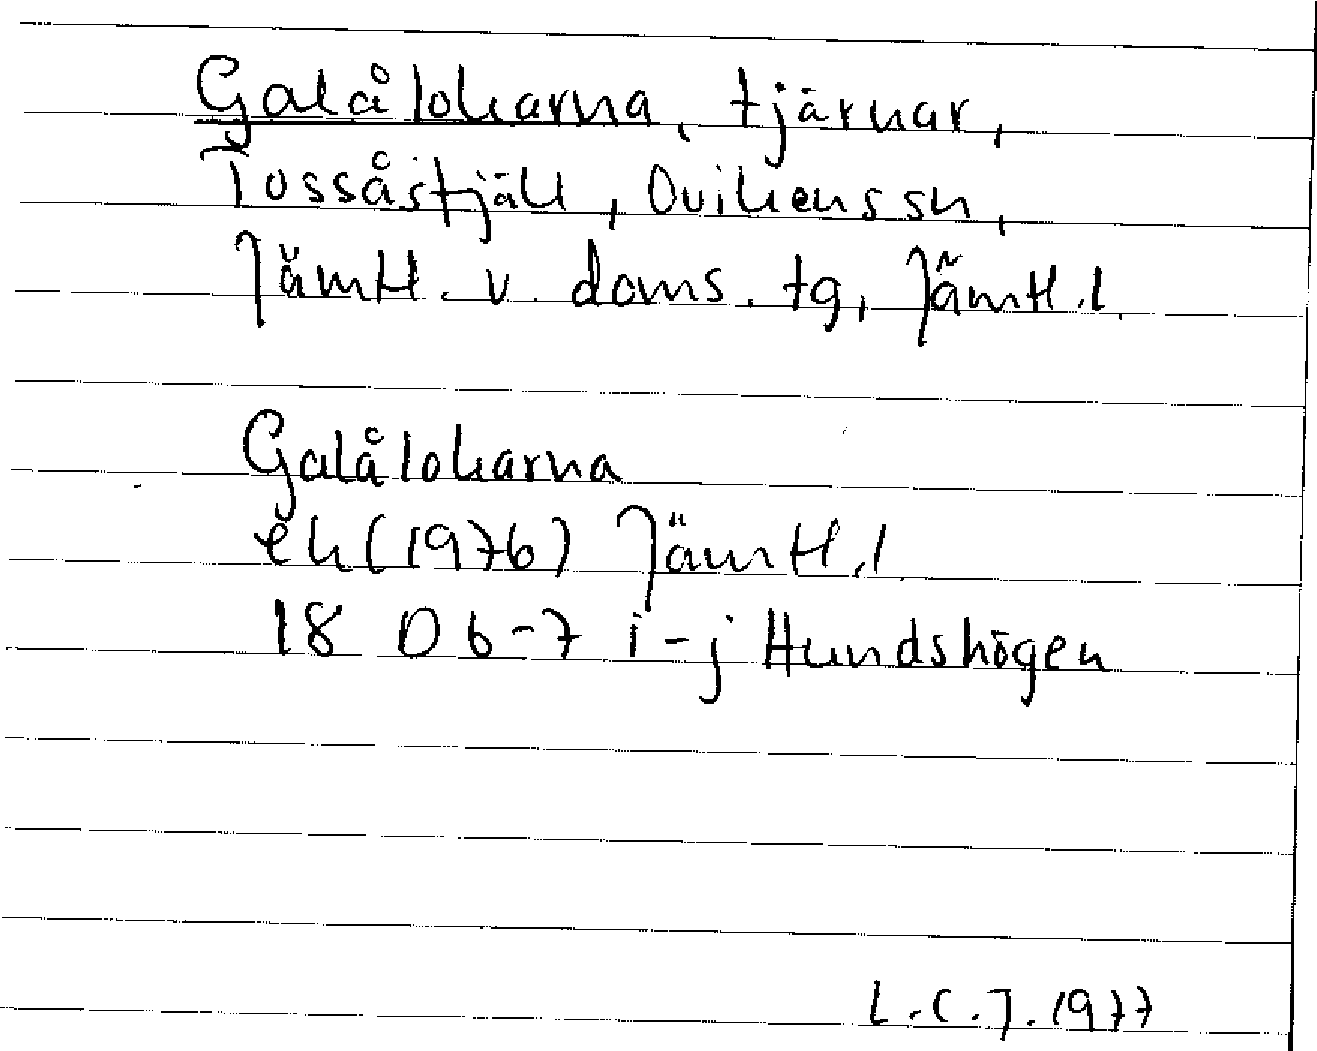 Galålokarna, tjärnar,
Tossåsfjäll, Ovikens sn,
Jämtl. v. doms. tg, Jämtl. l.
Galålokarna
ek (1976) Jämtl. l.
18 D 6-7 i-j Hundshögen
L.C.J. 1977